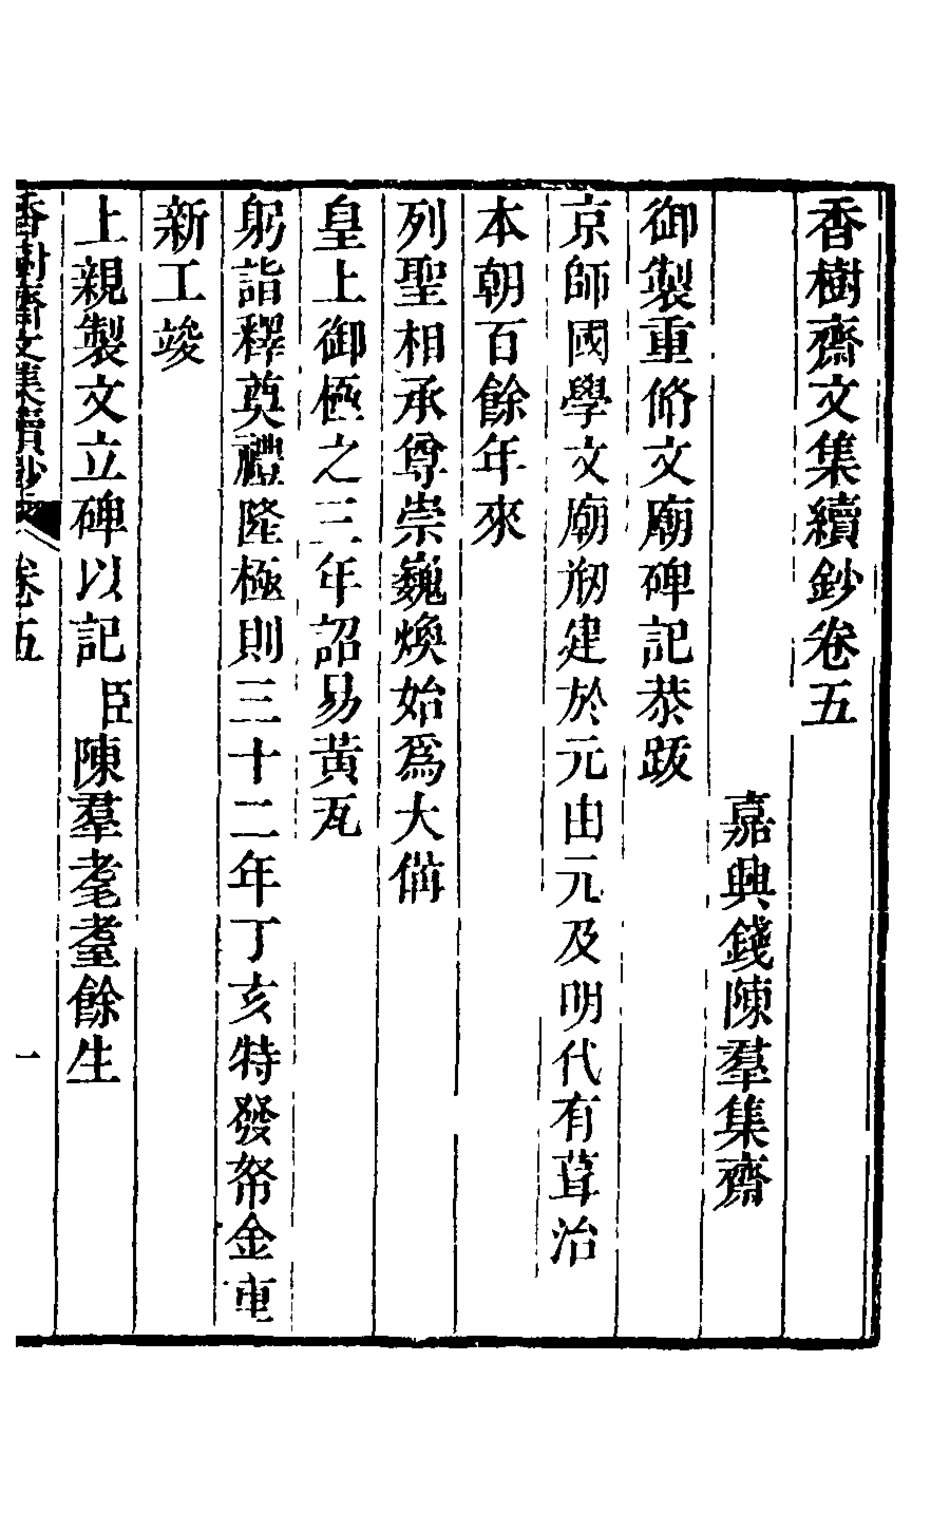 香樹齋文集續鈔卷五
嘉興錢陳羣集齋
御製重脩文廟碑記恭跋
京師國學文廟剏建於元由元及明代有葺治
本朝百餘年來
列聖相承尊崇巍煥始爲大備
皇上御極之三年詔易黃瓦
躬詣釋奠禮隆極則三十二年丁亥特發帑金重
新工竣
上親製文立碑以記臣陳羣耄耋餘生
香樹齋文集續鈔 卷五 一